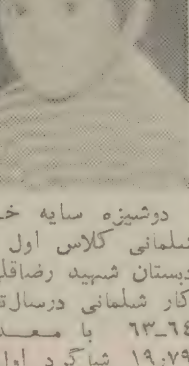 دوشیزه سایه خـ
شلمانی کلاس اول
دبستان شهید رضاقلی
کار شلمانی درسال‌تـ
۶۳_۶۴ با معـد
۱۹٫۷۹ شاگرد اول